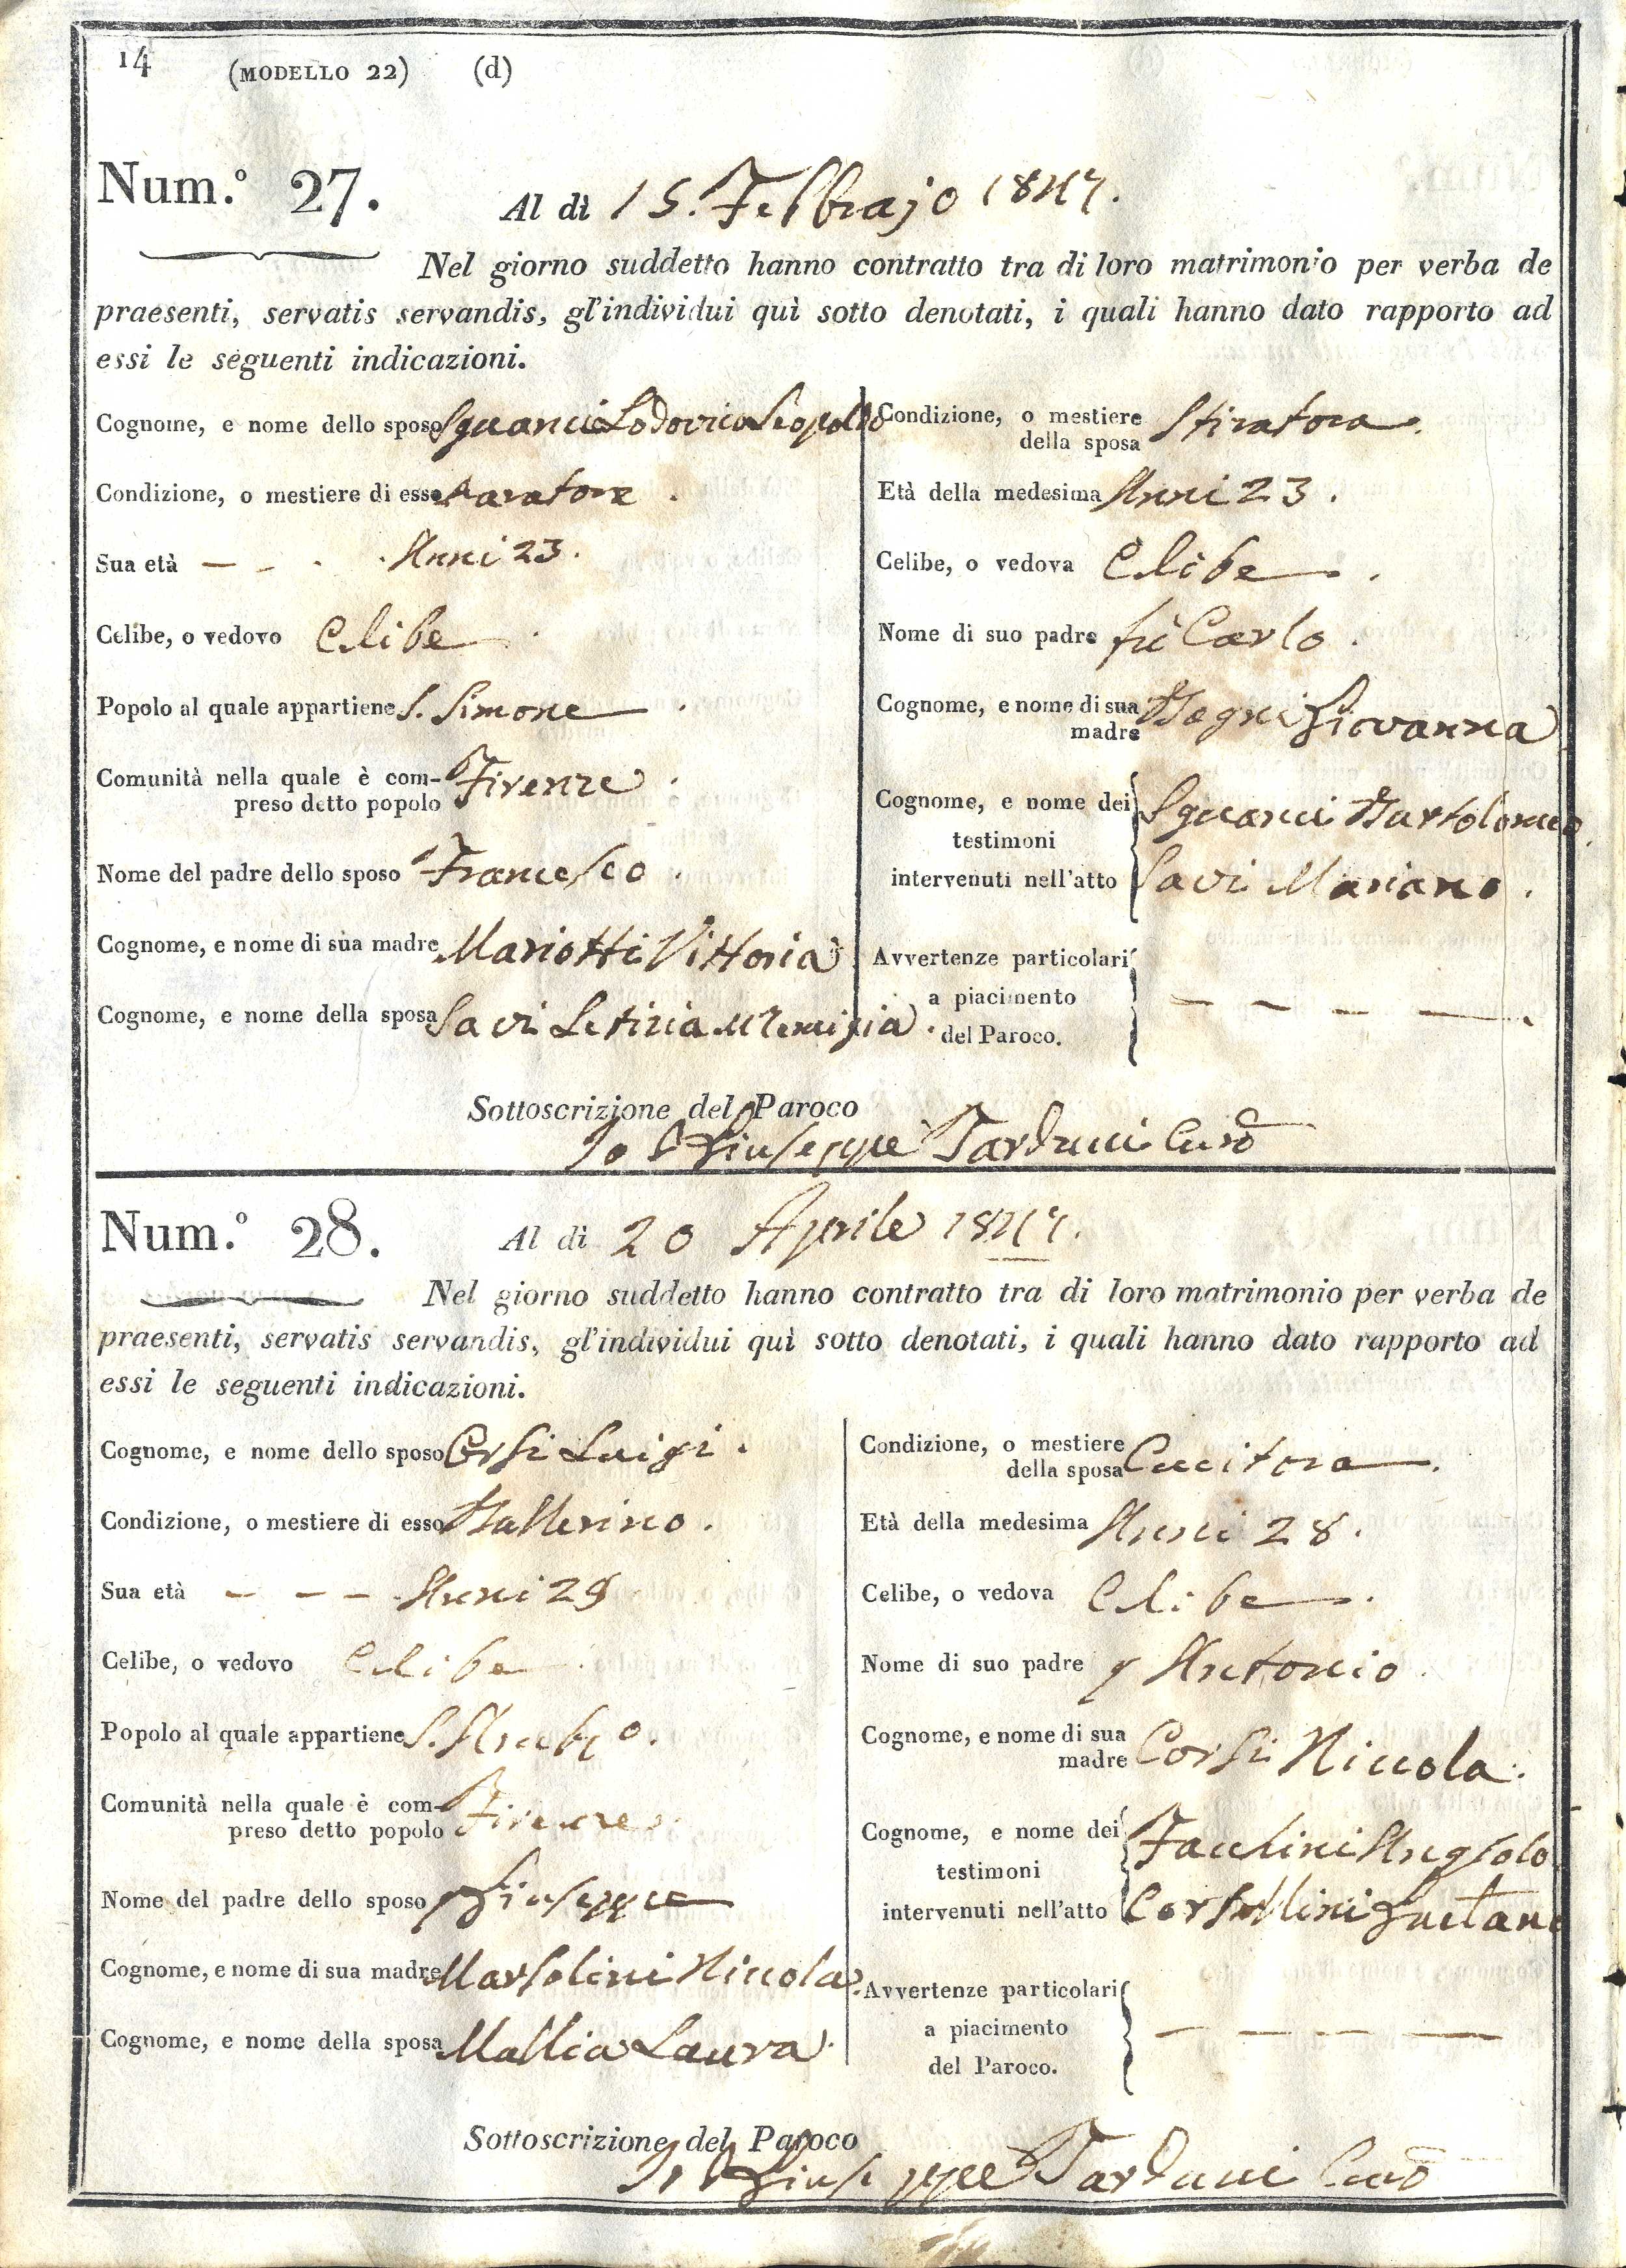 14 (MODELLO 22) (d)
Num.º 27. Al dì 15. Febbrajo 1847.
Nel giorno suddetto hanno contratto tra di loro matrimonio per verba de
praesenti, servatis servandis, gl'individui quì sotto denotati, i quali hanno dato rapporto ad
essi le seguenti indicazioni.
Cognome, e nome dello sposo Sguanci Lodovico Leopoldo
Condizione, o mestiere di esso
Sua età — - . . Anni 23.
Celibe, o vedovo Celibe .
Popolo al quale appartiene S. Simone .
Comunità nella quale è com-
preso detto popolo Firenze .
Nome del padre dello sposo Francesco .
Cognome, e nome di sua madre Mariotti Vittoria
Cognome, e nome della sposa Savi Letizia
Condizione, o mestiere
della sposa Stiratora .
Età della medesima Anni 23 .
Celibe, o vedova Celibe .
Nome di suo padre fù Carlo .
Cognome, e nome di sua
madre Giovanna
Cognome, e nome dei Sguanci Bartolomeo
testimoni
intervenuti nell'atto Savi Mariano .
Avvertenze particolari
a piacimento — — — —
del Paroco.
Sottoscrizione del Paroco
Io Giuseppe Tarducci Curo
Num.º 28. Al dì 20 Aprile 1847.
Nel giorno suddetto hanno contratto tra di loro matrimonio per verba de
praesenti, servatis servandis, gl'individui quì sotto denotati, i quali hanno dato rapporto ad
essi le seguenti indicazioni.
Cognome, e nome dello sposo Corsi Luigi .
Condizione, o mestiere di esso Ballerino .
Sua età - — — . Anni 29
Celibe, o vedovo Celibe
Popolo al quale appartiene S. Ambº.
Comunità nella quale è com-
preso detto popolo Firenze
Nome del padre dello sposo Giuseppe
Cognome, e nome di sua madre Marsolini Niccola
Cognome, e nome della sposa Mallia Laura
Condizione, o mestiere
della sposa Cucitora .
Età della medesima Anni 28 .
Celibe, o vedova Celibe .
Nome di suo padre q Antonio .
Cognome, e nome di sua
madre Corsi Niccola .
Cognome, e nome dei Angiolo
testimoni
intervenuti nell'atto Gaetano
Avvertenze particolari
a piacimento — — — —
del Paroco.
Sottoscrizione del Paroco
Io Giuseppe Tarducci Curo